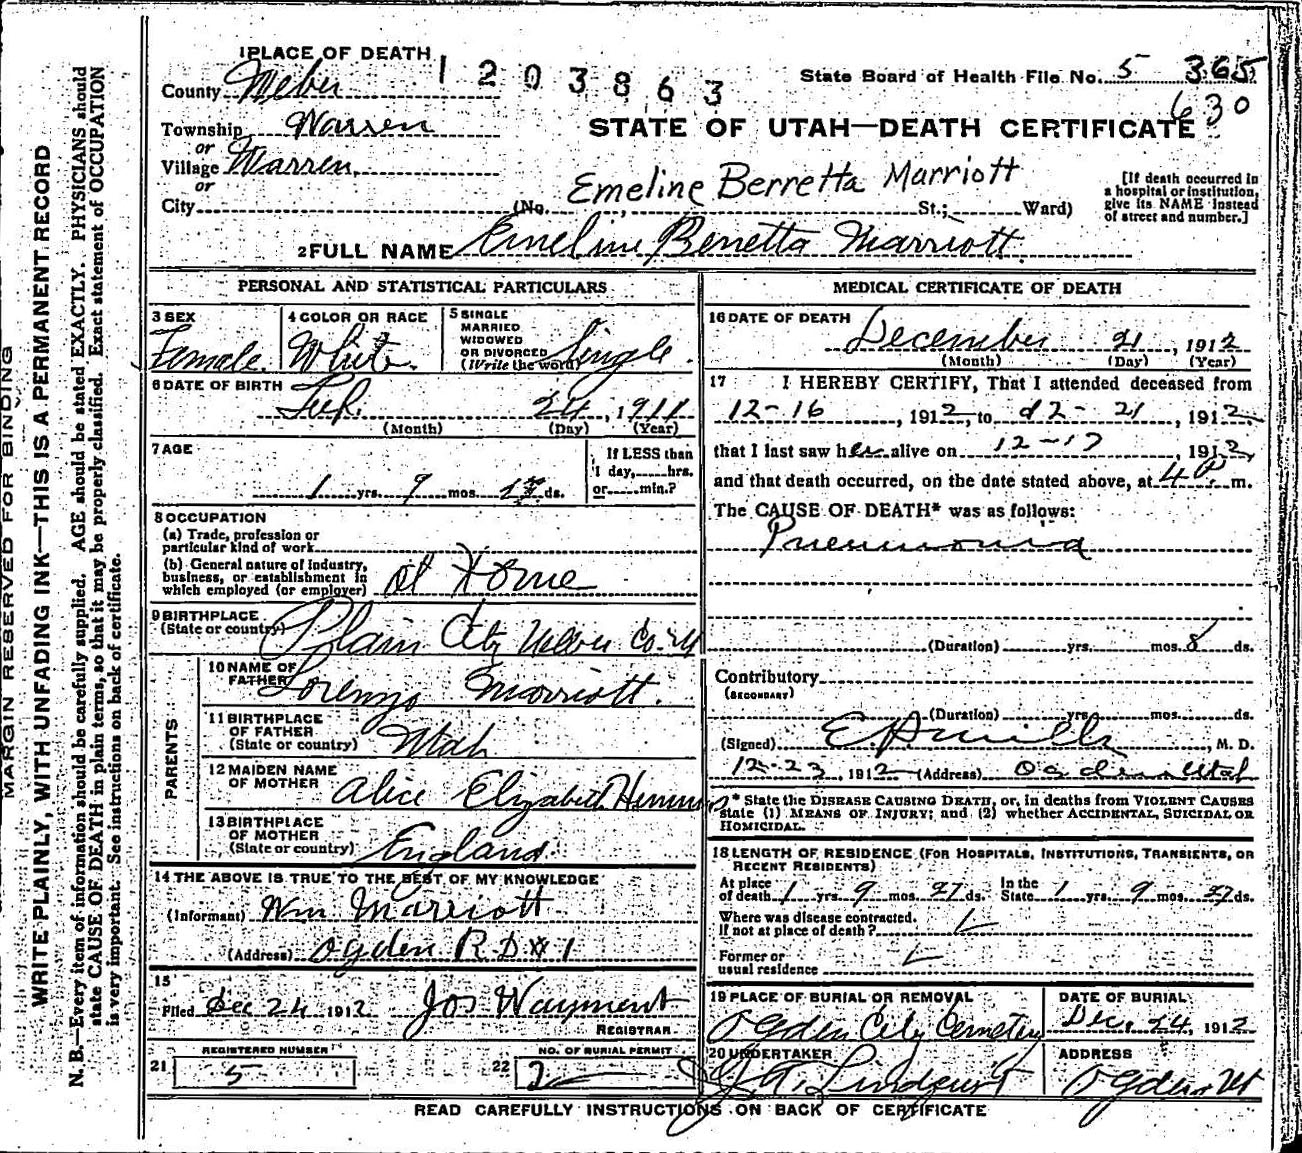 1 PLACE OF DEATH
1203863
State Board of Health File No. 5 365
County Weber
630
Township Warren
STATE OF UTAH—DEATH CERTIFICATE
or
Village Warren
or
Emeline Berretta Marriott
[If death occurred in a hospital or institution, give its NAME instead of street and number.]
City (No. St.; Ward)
2 FULL NAME Emeline Berretta Marriott
PERSONAL AND STATISTICAL PARTICULARS
3 SEX
Female.
4 COLOR OR RACE
White.
5 SINGLE
MARRIED
WIDOWED
OR DIVORCED
(Write the word) Single.
6 DATE OF BIRTH
24, 1911
(Month) (Day) (Year)
7 AGE
If LESS than
1 day, hrs.
or min.?
1 yrs. 9 mos. ds.
8 OCCUPATION
(a) Trade, profession or
particular kind of work
(b) General nature of industry,
business, or establishment in
which employed (or employer) at Home
9 BIRTHPLACE
(State or country) Plain City Weber Co.
PARENTS
10 NAME OF
FATHER Lorenzo Marriott.
11 BIRTHPLACE
OF FATHER
(State or country) Utah
12 MAIDEN NAME
OF MOTHER Alice Elizabeth
13 BIRTHPLACE
OF MOTHER
(State or country) England.
14 THE ABOVE IS TRUE TO THE BEST OF MY KNOWLEDGE
(Informant) Wm Marriott
(Address) Ogden R.D # 1
15
Filed Dec 24 1912 Jos Wayment
REGISTRAR
21 REGISTERED NUMBER 5
22 NO. OF BURIAL PERMIT 2
MEDICAL CERTIFICATE OF DEATH
16 DATE OF DEATH
December 21, 1912
(Month) (Day) (Year)
17 I HEREBY CERTIFY, That I attended deceased from
12-16, 1912, to 12-21, 1912,
that I last saw her alive on 12-17, 1912,
and that death occurred, on the date stated above, at 4 P. m.
The CAUSE OF DEATH* was as follows:
Pneumonia
(Duration) yrs. mos. 8 ds.
Contributory
(SECONDARY)
(Duration) yrs. mos. ds.
(Signed) E P Mills, M. D.
12-23, 1912 (Address) Ogden Utah
* State the DISEASE CAUSING DEATH, or, in deaths from VIOLENT CAUSES
state (1) MEANS OF INJURY; and (2) whether ACCIDENTAL, SUICIDAL OR
HOMICIDAL.
18 LENGTH OF RESIDENCE (FOR HOSPITALS, INSTITUTIONS, TRANSIENTS, OR
RECENT RESIDENTS)
At place
of death 1 yrs. 9 mos. 27 ds. In the
State 1 yrs. 9 mos. 27 ds.
Where was disease contracted.
If not at place of death?
Former or
usual residence
19 PLACE OF BURIAL OR REMOVAL
Ogden City Cemetery
DATE OF BURIAL
Dec. 24, 1912
20 UNDERTAKER
Lindquist
ADDRESS
Ogden Ut
READ CAREFULLY INSTRUCTIONS ON BACK OF CERTIFICATE
MARGIN RESERVED FOR BINDING
WRITE PLAINLY, WITH UNFADING INK—THIS IS A PERMANENT RECORD
N. B.—Every item of information should be carefully supplied. AGE should be stated EXACTLY. PHYSICIANS should
state CAUSE OF DEATH in plain terms, so that it may be properly classified. Exact statement of OCCUPATION
is very important. See instructions on back of certificate.